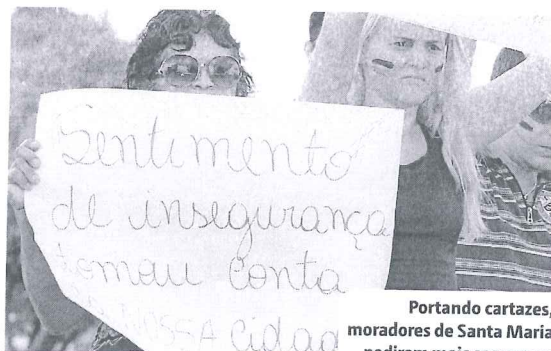 Sentimento
de insegurança
tomou conta
NOSSA cidad
Portando cartazes,
moradores de Santa Maria
pediram mais